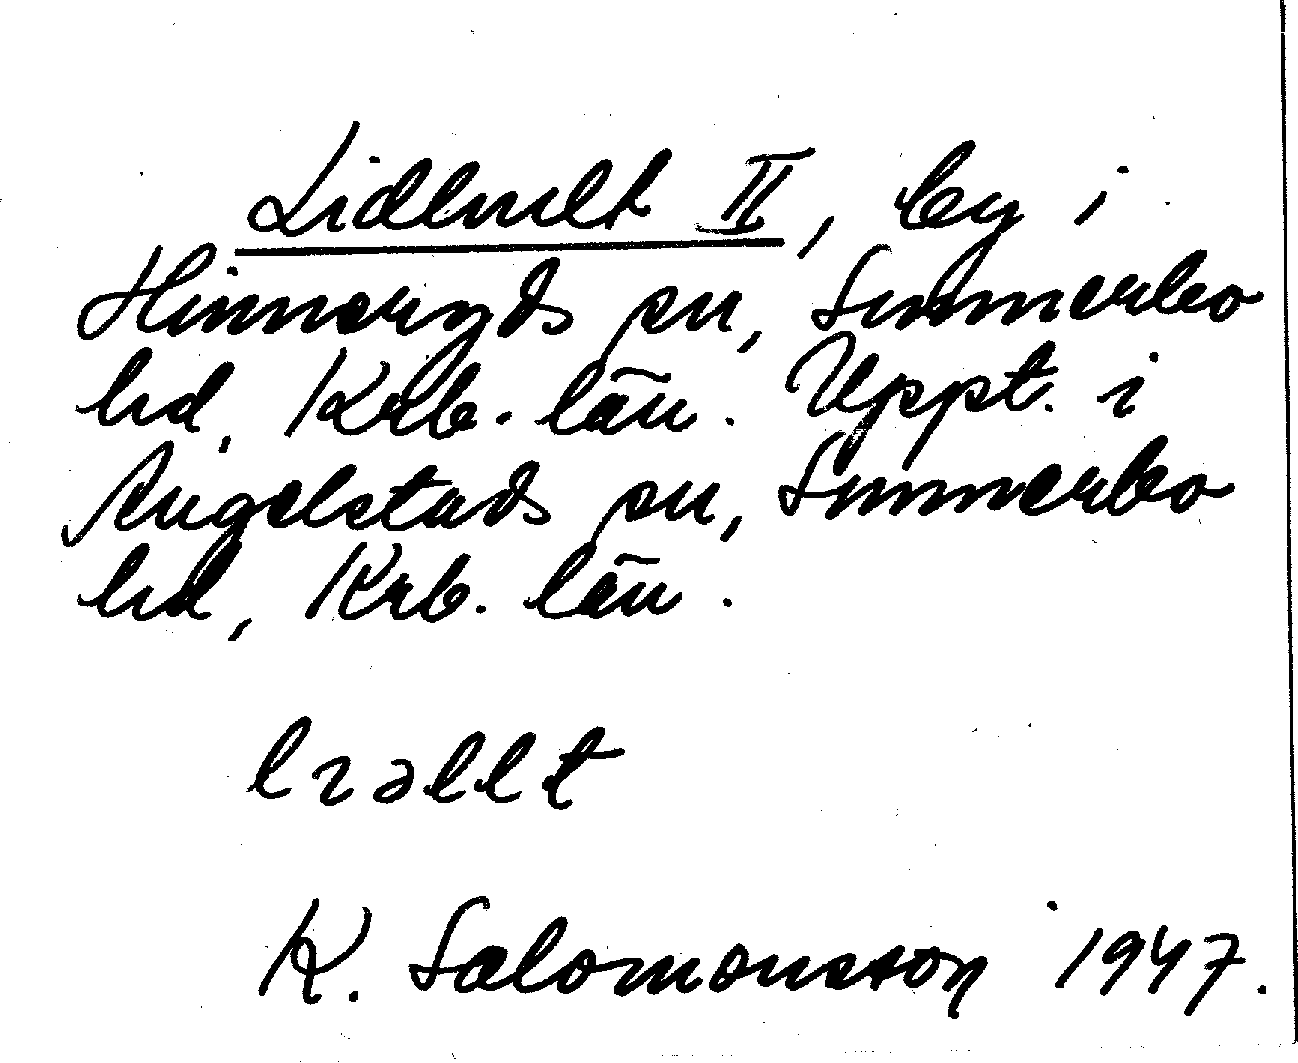 Lidhult II, by i
Hinneryds sn, Sunnerbo
hd, Krb. län. Uppt. i
Angelstads sn, Sunnerbo
hd, Krb. län.
K. Salomonsson 1947.